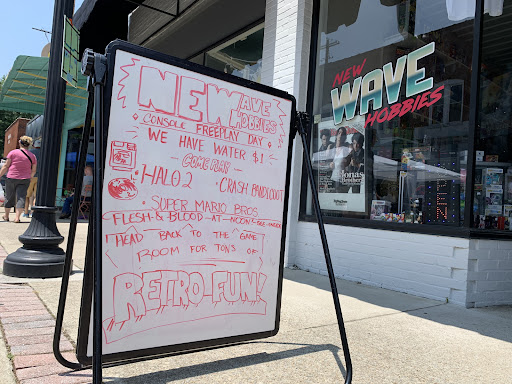 NEW WAVE HOBBIES
CONSOLE FREEPLAY DAY
WE HAVE WATER $1
- COME PLAY -
HALO 2
• CRASH BANDICOOT
• SUPER MARIO BROS
FLESH & BLOOD - AT - NOON
HEAD BACK TO THE GAME
ROOM FOR TONS OF
RETRO FUN!
NEW
WAVE
HOBBIES
Jonas
Brothers